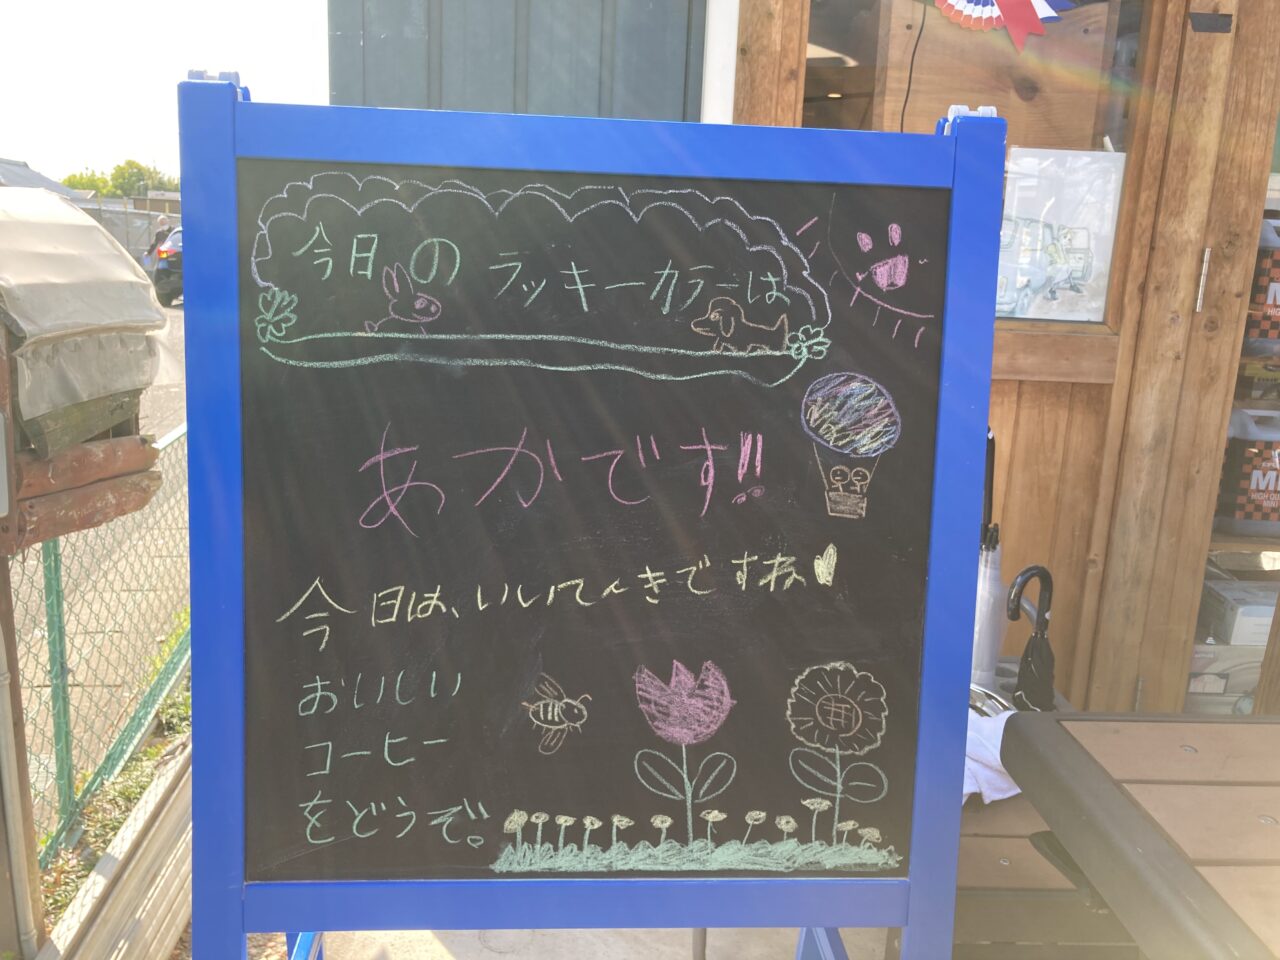 今日のラッキーカラーは
あかです!!
今日は、いいてんきですね
おいしい
コーヒー
をどうぞ。
HIGH QU
MINT